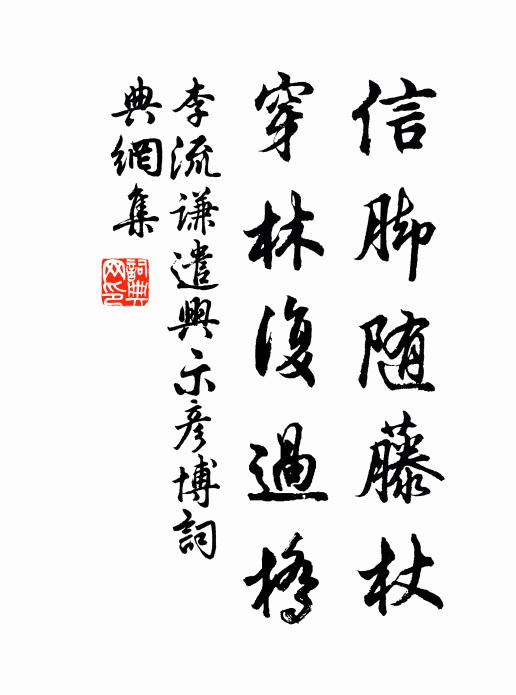 信脚随藤杖
穿林復過橋
李流謙遣興示彦博詞
典網集
詞典网印